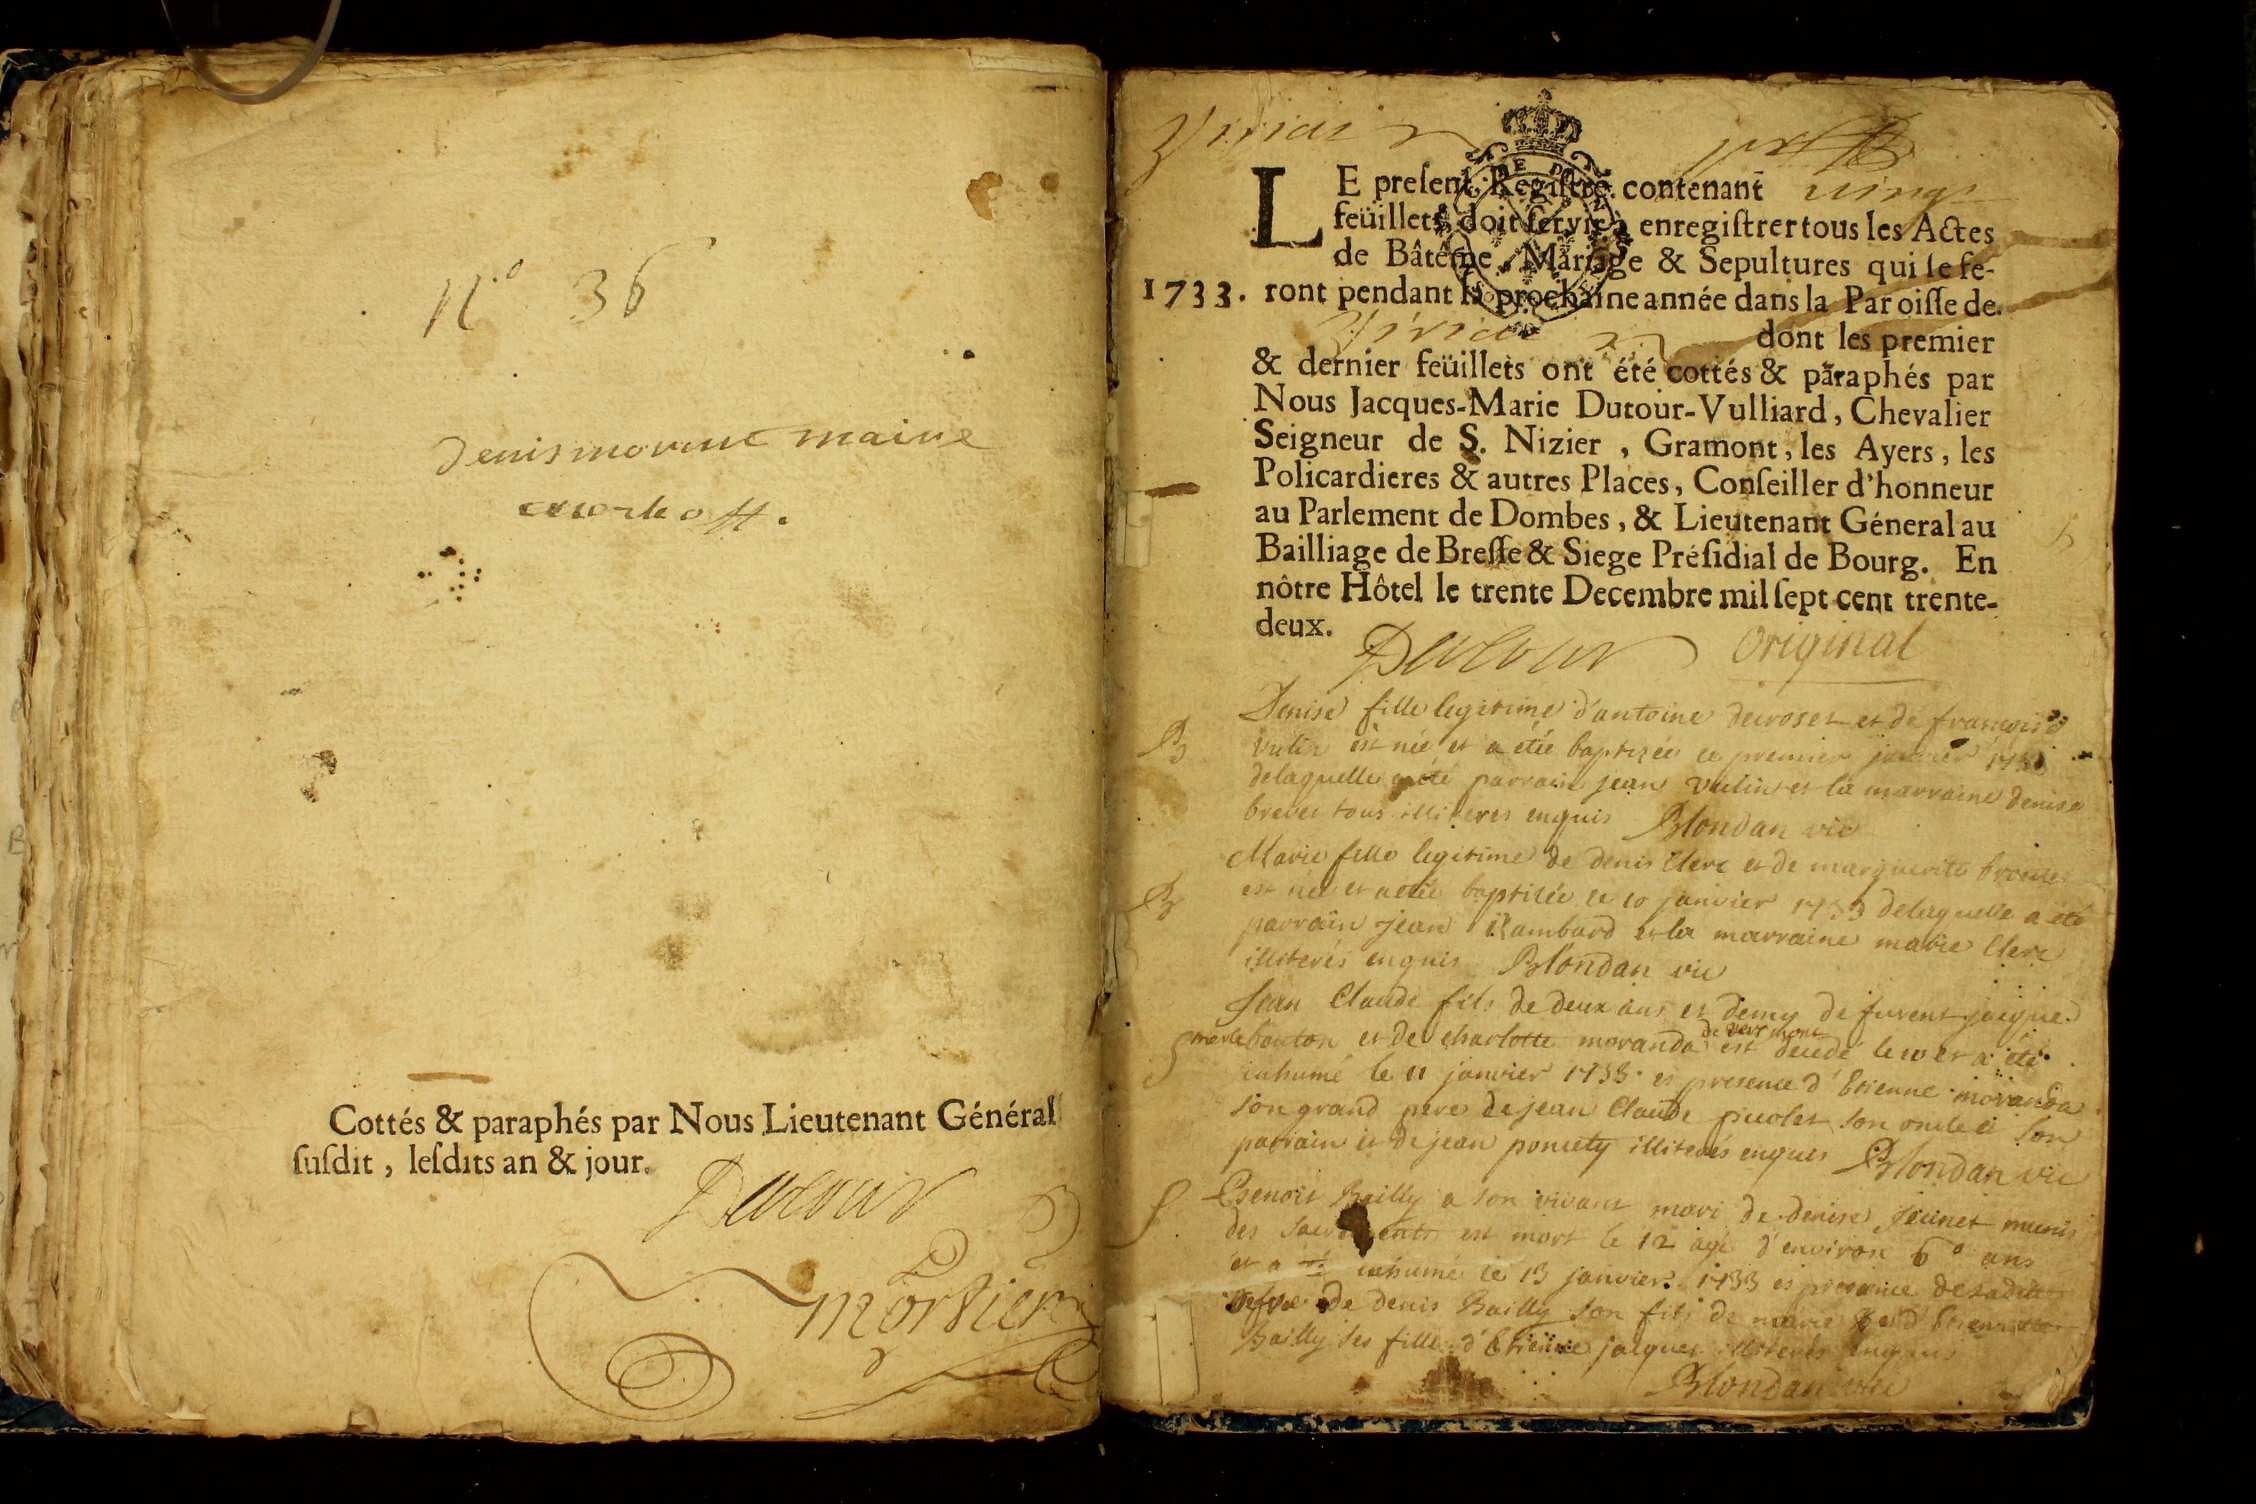 N.o 36
denis morant maire
Cottés & paraphés par Nous Lieutenant Général
ſuſdit, leſdits an & jour.
Dutour
mortier
Viriat
LE preſent Regiſtre contenant vingt
feüillets doit ſervir à enregiſtrer tous les Actes
de Bâteme, Mariage & Sepultures qui ſe fe-
1733. ront pendant la prochaine année dans la Paroiſſe de
Viriat dont les premier
& dernier feüillets ont été cottés & paraphés par
Nous Jacques-Marie Dutour-Vulliard, Chevalier
Seigneur de S. Nizier, Gramont, les Ayers, les
Policardieres & autres Places, Conſeiller d'honneur
au Parlement de Dombes, & Lieutenant Géneral au
Bailliage de Breſſe & Siege Préſidial de Bourg. En
nôtre Hôtel le trente Decembre mil ſept cent trente-
deux.
Dutour Original
Denise fille legitime d'antoine decroset et de francoise
B vulin est née et a étée baptizée le premier janvier 1733
delaquelle a été parrain jean vulin et la marraine denise
brevet tous illiteres enquis Blondan vic
Marie fille legitime de denis Clerc et de marguerite
B est née et a étée baptisée le 10 janvier 1733 delaquelle a été
parrain jean Rambard et la marraine marie Clerc
illiterés enquis Blondan vic
Jean Claude fils de deux ans et demy de furent jacque
S merle bonton et de charlotte moranda de vermont est decedé le 10 et a été
inhumé le 11 janvier 1733 es presence d'Etienne moranda
son grand pere de jean Claude picolet son oncle et son
parrain et de jean poncety illiterés enquis Blondan vic
S Benoit Bailly a son vivant mari de denise jeunet munis
des sacrements est mort le 12 agé d'environ 60 ans
et a été inhumé le 13 janvier 1733 es presence de sadite
vefve de denis Bailly son fils de marie et d'
Bailly ses filles d'Etienne jacquet illiterés enquis
Blondan vic